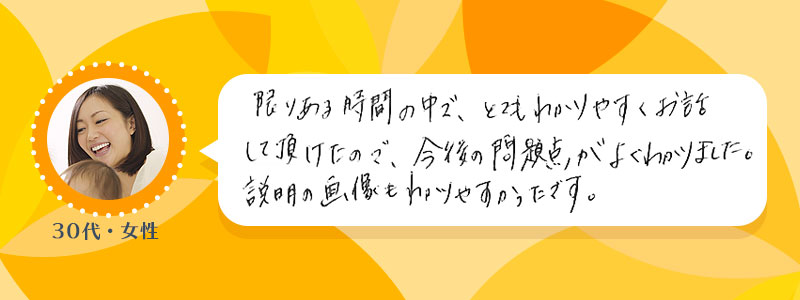 限りある時間の中で、とてもわかりやすくお話
して頂けたので、今後の問題点がよくわかりました。
説明の画像もわかりやすかったです。
30代・女性